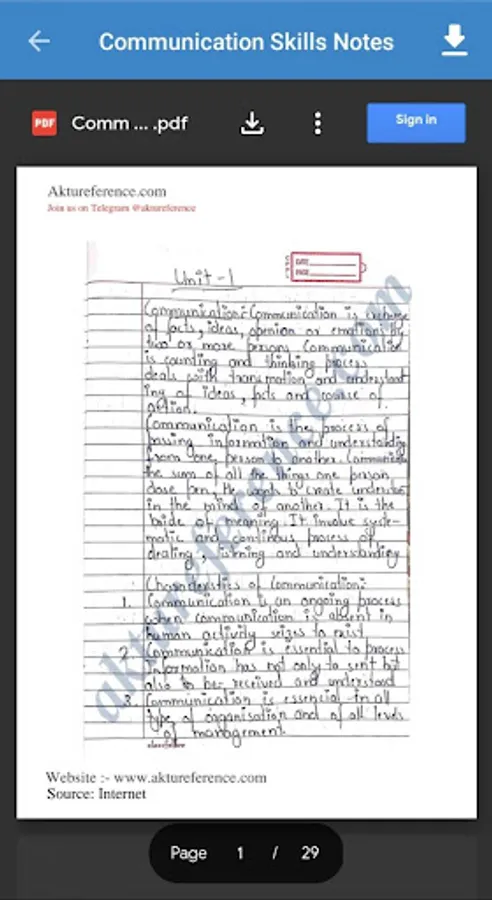 Communication Skills Notes
PDF Comm ... .pdf
Sign in
Aktureference.com
Join us on Telegram @aktureference
DATE
PAGE
Unit-1
Communication:- Communication is exchange
of facts, ideas, openion or emotions by
two or more persons. Communication
is counting and thinking process
deals with transmation and understand
ing of ideas, facts and course of
action.
Communication is the process of
passing information and understanding
from one person to another. Communication
the sum of all the things one person
dose when he wants to create understan
in the mind of another. It is the
bride of meaning. It involve syste-
matic and continous process of
dealing, listning and understanding
Characteristics of Communication:-
1. Communication is an ongoing process
when communication is absent in
human activity seizes to exist
2. Communication is essential to process
information has not only to sent but
also to be received and understood
3. Communication is essencial in all
type of organisation and of all levels
of management.
classmate
aktureference.com
Website :- www.aktureference.com
Source: Internet
Page 1 / 29